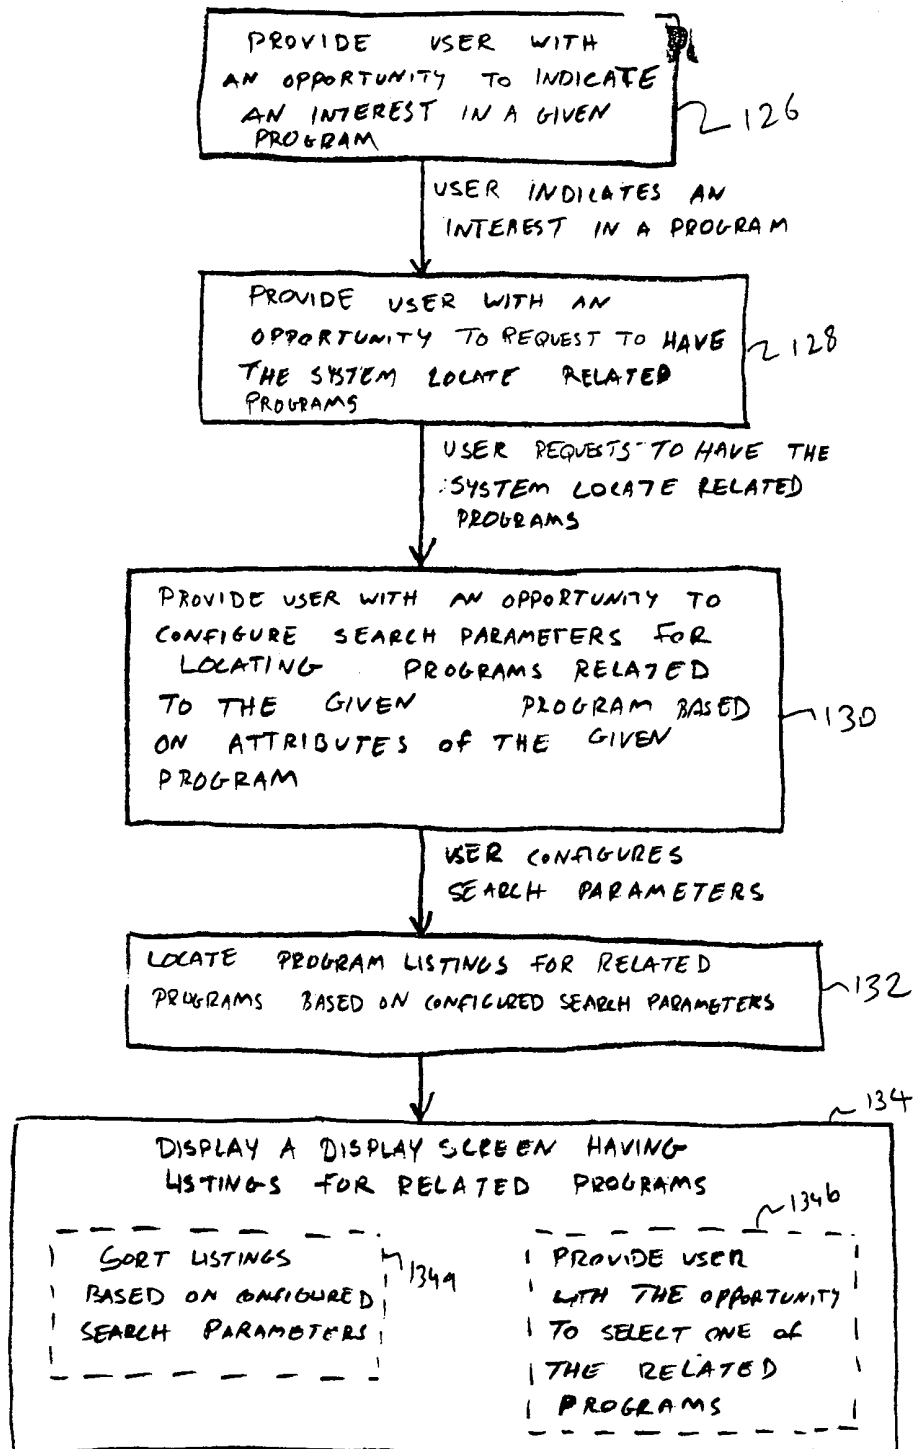 PROVIDE USER WITH
AN OPPORTUNITY TO INDICATE
AN INTEREST IN A GIVEN
PROGRAM
126
USER INDICATES AN
INTEREST IN A PROGRAM
PROVIDE USER WITH AN
OPPORTUNITY TO REQUEST TO HAVE
THE SYSTEM LOCATE RELATED
PROGRAMS
128
USER REQUESTS TO HAVE THE
SYSTEM LOCATE RELATED
PROGRAMS
PROVIDE USER WITH AN OPPORTUNITY TO
CONFIGURE SEARCH PARAMETERS FOR
LOCATING PROGRAMS RELATED
TO THE GIVEN PROGRAM BASED
ON ATTRIBUTES OF THE GIVEN
PROGRAM
130
USER CONFIGURES
SEARCH PARAMETERS
LOCATE PROGRAM LISTINGS FOR RELATED
PROGRAMS BASED ON CONFIGURED SEARCH PARAMETERS
132
134
DISPLAY A DISPLAY SCREEN HAVING
LISTINGS FOR RELATED PROGRAMS
134a
SORT LISTINGS
BASED ON CONFIGURED
SEARCH PARAMETERS
134b
PROVIDE USER
WITH THE OPPORTUNITY
TO SELECT ONE OF
THE RELATED
PROGRAMS